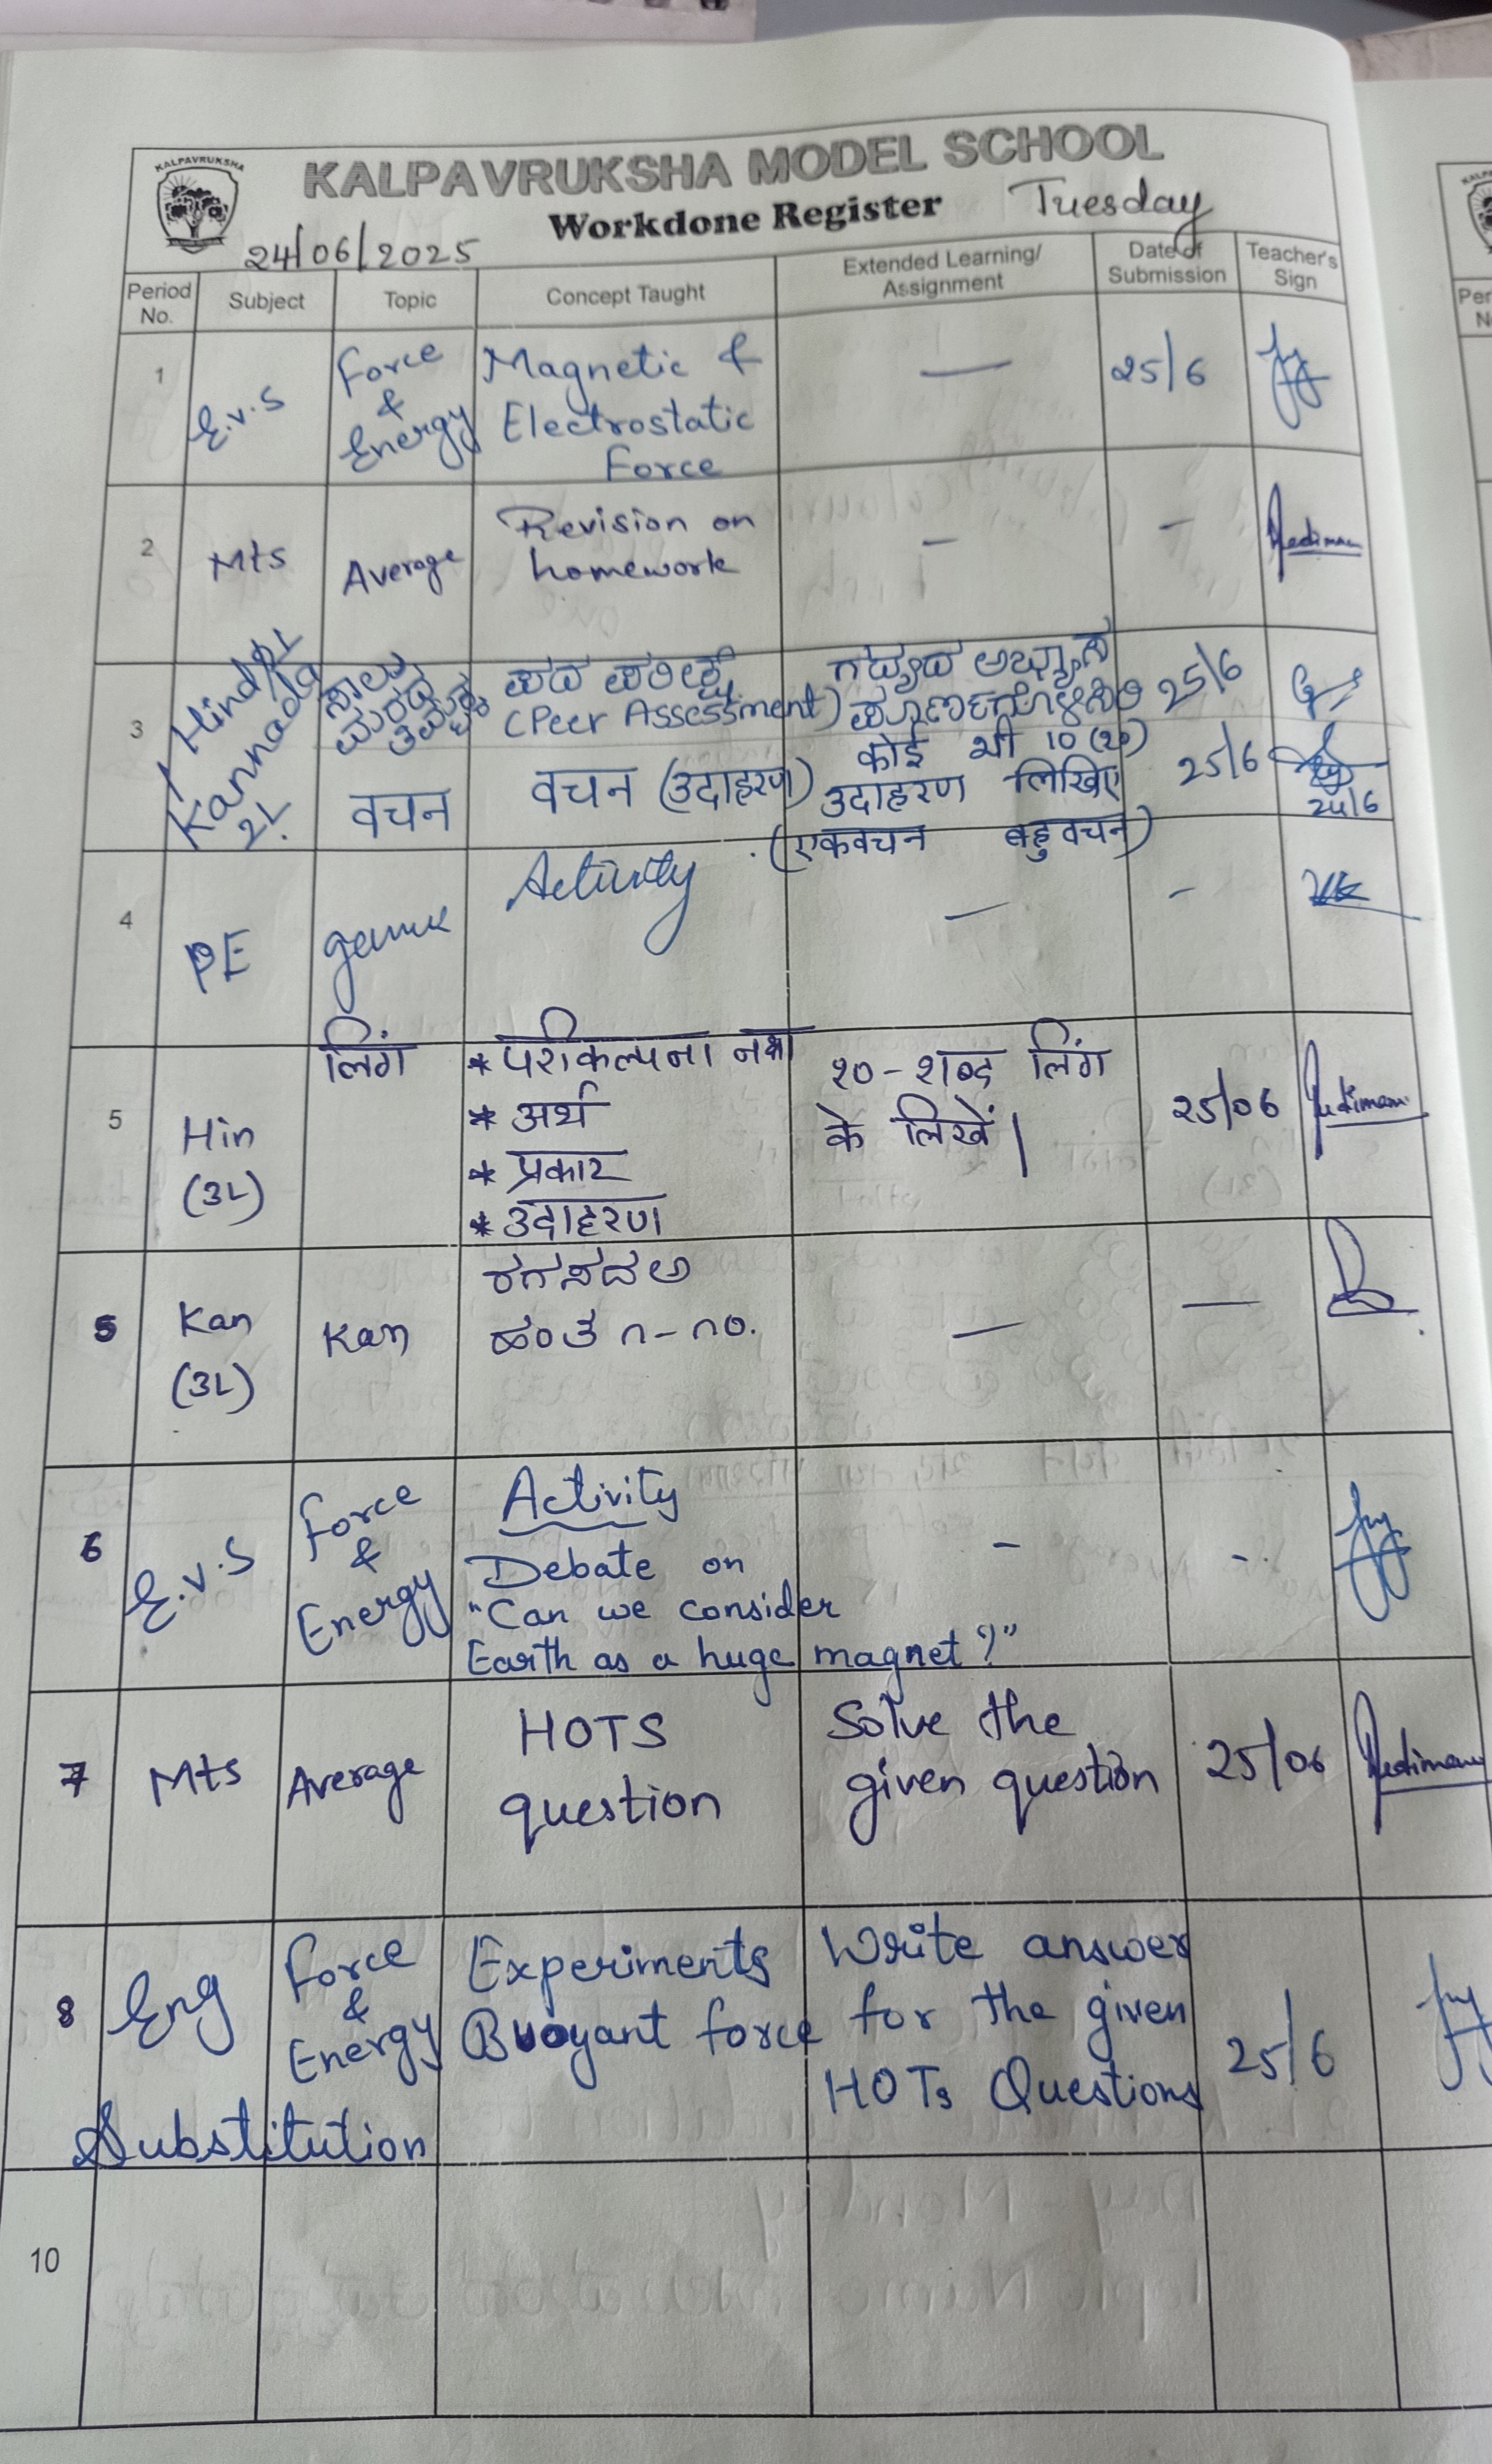 KALPAVRUKSHA
KALPAVRUKSHA MODEL SCHOOL
Workdone Register Tuesday
24/06/2025
Period No. Subject Topic Concept Taught Extended Learning/ Assignment Date of Submission Teacher's Sign
1 E.V.S Force & Energy Magnetic & Electrostatic Force — 25/6
2 Mts Average Revision on homework — -
3 Hindi 2L Kannada 2L.
ಸಾಲು ಮರದ ತಿಮ್ಮಕ್ಕ ಪದ ಪರೀಕ್ಷೆ (Peer Assessment) ಗದ್ಯದ ಅಭ್ಯಾಸ ಪೂರ್ಣಗೊಳಿಸಿರಿ 25/6
वचन वचन (उदाहरण) कोई भी 10 उदाहरण लिखिए (एकवचन बहुवचन) 25/6
24/6
4 PE game Activity — -
5 Hin (3L) लिंग
* परीकल्पना नक्शा
* अर्थ
* प्रकार
* उदाहरण
१०-शब्द लिंग के लिखें| 25/06
5 Kan (3L) Kan
ರಗಸದಅ
ಹಂತ ೧-೧೦.
— —
6 E.V.S Force & Energy
Activity
Debate on
"Can we consider
Earth as a huge magnet?"
- -
7 Mts Average HOTS question Solve the given question 25/06
8 Eng Force & Energy Experiments Buoyant force Write answer for the given HOTs Questions 25/6
Substitution
10